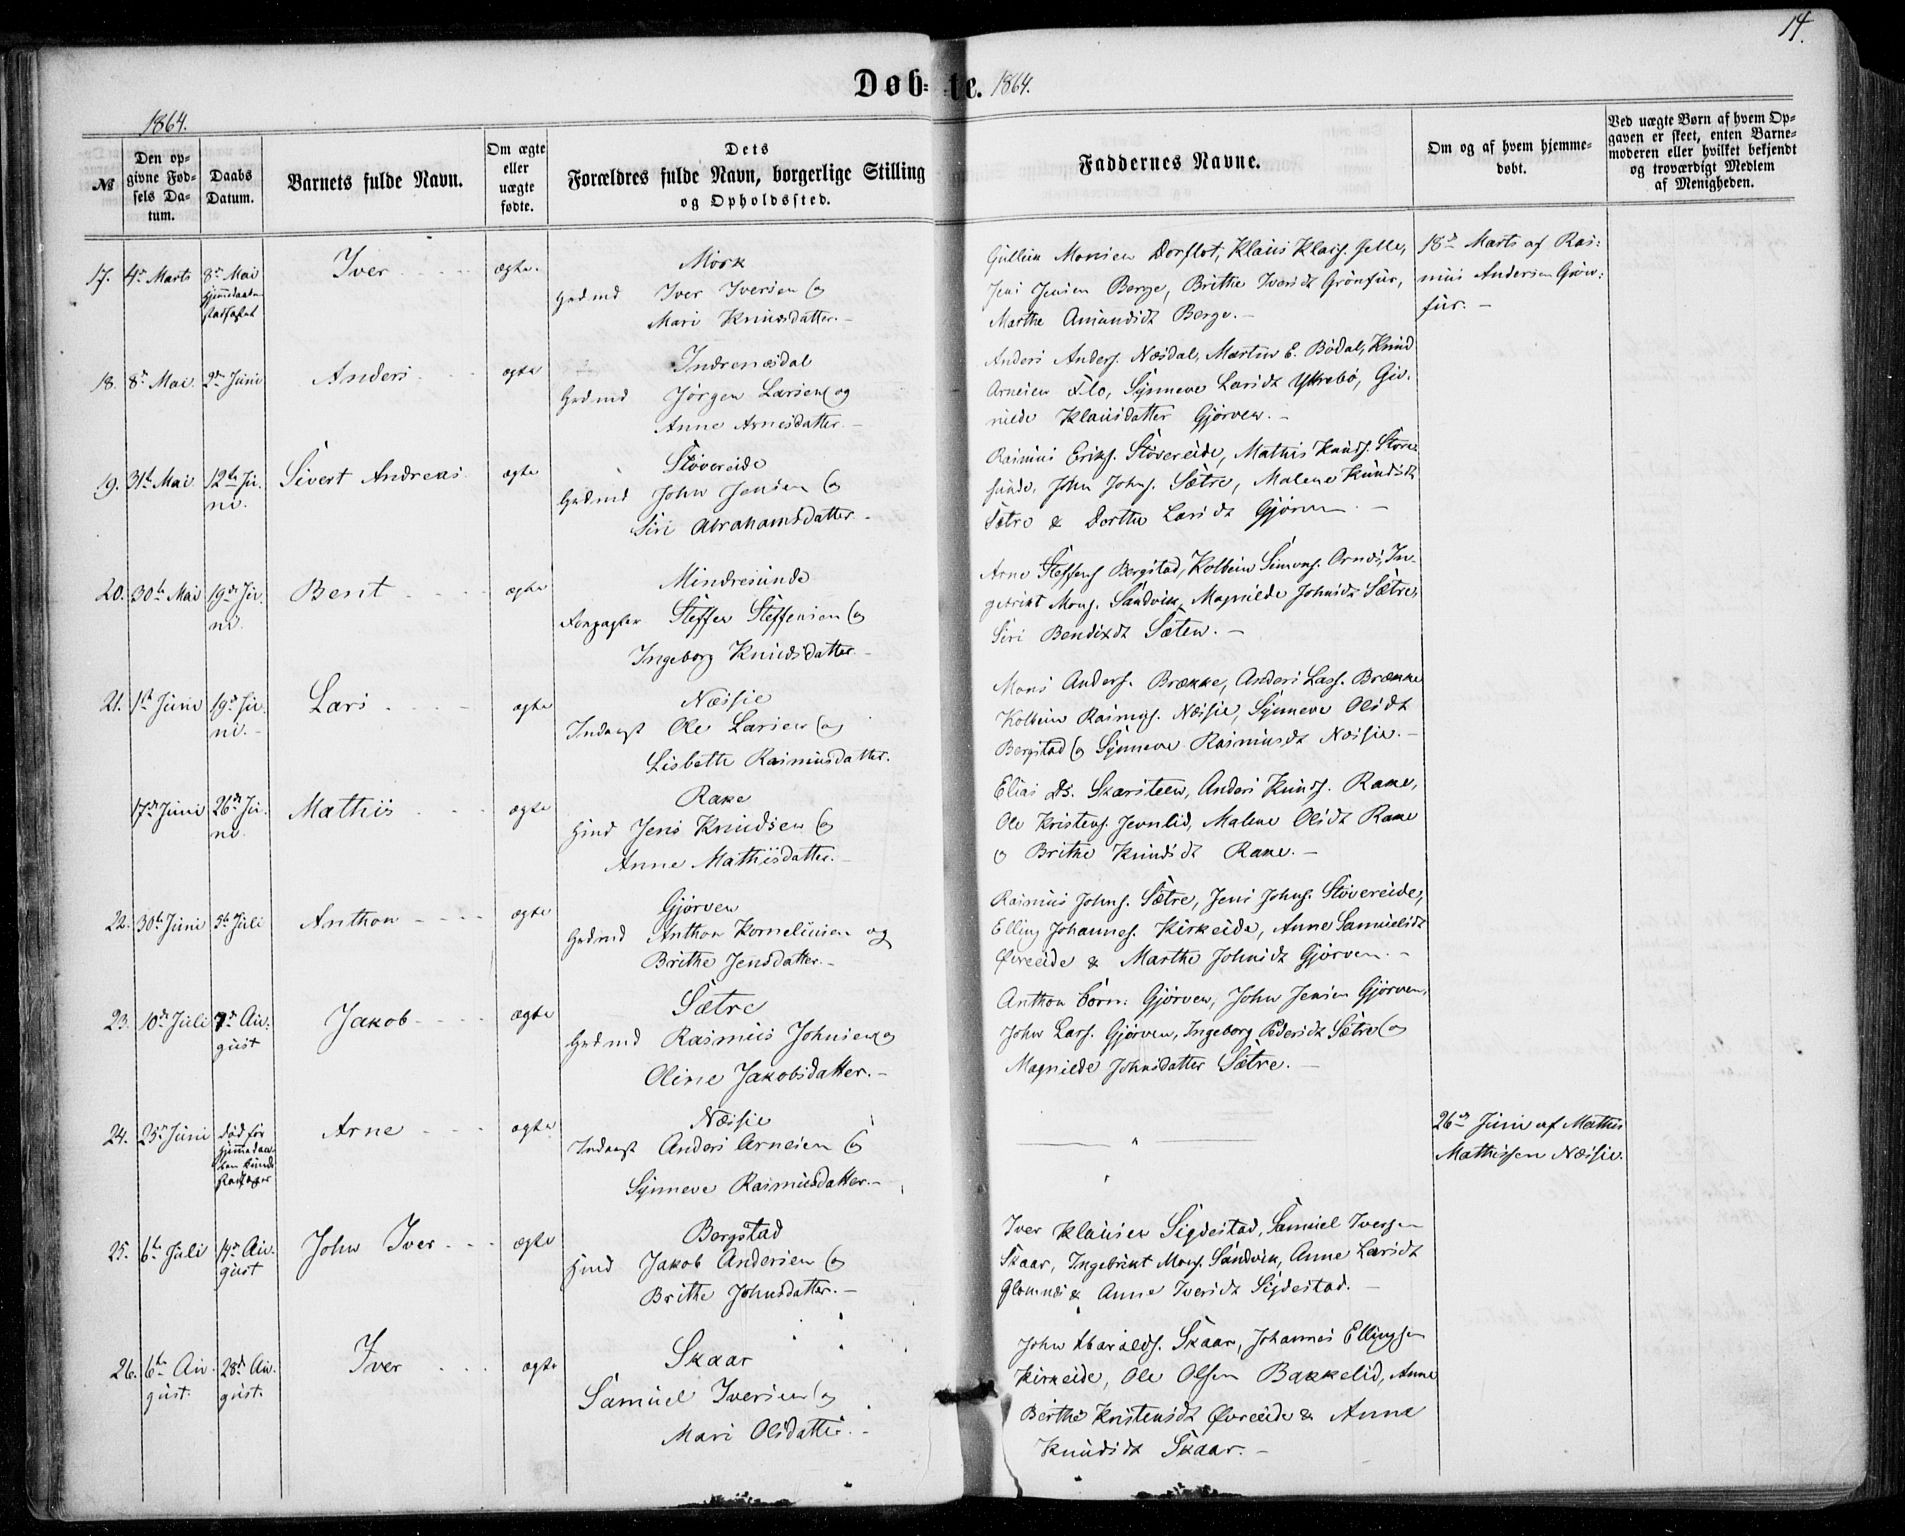 14.
Døb=te. 1864.
1864.
№
Den op-
givne Fød-
sels Da-
tum.
Daabs
Datum.
Barnets fulde Navn.
Om ægte
eller
uægte
fødte.
Dets
Forældres fulde Navn, borgerlige Stilling
og Opholdssted.
Faddernes Navne.
Om og af hvem hjemme-
døbt.
Ved uægte Børn af hvem Op-
gaven er skeet, enten Barne-
moderen eller hvilket bekjendt
og troværdigt Medlem
af Menigheden.
17. 4de Marts 8de Mai Iver ægte.
Hjemmedaaben
stadfæstet
Mørk
Grdmd Iver Iversen og
Mari Knudsdatter.-
Gullein Monsen Dorflot, Klaus Klaus. Jelle,
Jens Jensen Berge, Brithe Iversdt Grønfur,
Marthe Amundsdt Berge.-
18de Marts af Ras=
mus Andersen Grøn=
fur.-
18. 8de Mai 2den Juni Anders ægte
Indrenæsdal
Grdmd Jørgen Larsen og
Anne Arnesdatter.-
Anders Anders. Næsdal, Martin E. Bødal, Knud
Arnesen Flo, Synneve Larsdt Ytrebø, Gu-
nilde Klausdatter Gjørven.-
19. 31te Mai 12te Ju-
ni. Sivert Andreas ægte
Støvereide
Grdmd John Jensen og
Siri Abrahamsdatter.-
Rasmus Eriks. Støvereide, Mathis Knuds. Store
sunde, John Johns. Sætre, Malene Knudsdt
Sætre & Dorthe Larsdt Gjørven.-
20. 30te Mai 19de Ju-
ni. Bent ægte
Mindresunde
Forpagter Steffen Steffensen og
Ingeborg Knudsdatter.-
Arne Steffens. Bergstad, Kolbein Simons. Arnes, In-
gebrikt Mons. Sandvik, Magnilde Johnsdt Sætre,
Siri Bendixdt Sæten.-
21. 1ste Juni 19de Ju-
ni.- Lars ægte
Næsje
Inderst Ole Larsen og
Lisbeth Rasmusdatter.
Mons Anders. Brække, Anders Lass. Brække
Kolbein Rasmus. Næsje, Synneve Olsdt
Bergstad og Synneve Rasmusdt Næsje.-
17de Juni 26de Ju-
ni. Mathis ægte
Rake
Hmd Jens Knudsen og
Anne Mathisdatter.-
Elias Ds. Skarsteen, Anders Knuds. Rake,
Ole Kristens. Jevnlid, Malene Olsdt Rake
og Brithe Knudsdt Rake.-
22. 30te Juni 5te Juli Anthon ægte
Gjørven
Grdmd Anthon Korneliusen og
Brithe Jensdatter.-
Rasmus Johns. Sætre, Jens Johns. Støvereide,
Elling Johannes. Kirkeide, Anne Samuelsdt
Øvreeide & Marthe Johnsdt Gjørven.-
23. 10de Juli 7de Au-
gust Jakob ægte
Sætre
Grdmd Rasmus Johnsen og
Oline Jakobsdatter.-
Anthon Corn: Gjørven, John Jensen Gjørven,
John Lars. Gjørven, Ingeborg Pedersdt Sætre og
Magnilde Johnsdatter Sætre.-
24. 25de Juni død før
Hjemmedaa-
ben kunde
stadfæstes Arne ægte
Næsje
Inderst Anders Arnesen og
Synneve Rasmusdatter.-
26de Juni af Mathis
Mathissen Næsje.
25. 6te Juli 14de Au-
gust John Iver ægte
Bergstad
Hmd Jakob Andersen og
Brithe Johnsdatter.-
Iver Klausen Sigdestad, Samuel Iversen
Skaar, Ingebrikt Mons. Sandvik, Anne Larsdt
Glomnes & Anne Iversdt Sigdestad.-
26. 6te Au-
gust. 28de Au-
gust. Iver ægte
Skaar
Samuel Iversen og
Mari Olsdatter.-
John Haralds. Skaar, Johannes Ellingsen
Kirkeide, Ole Olsen Bakkelid, Anne
Berthe Kristensdt Øvreeide & Anne
Knudsdt Skaar.-